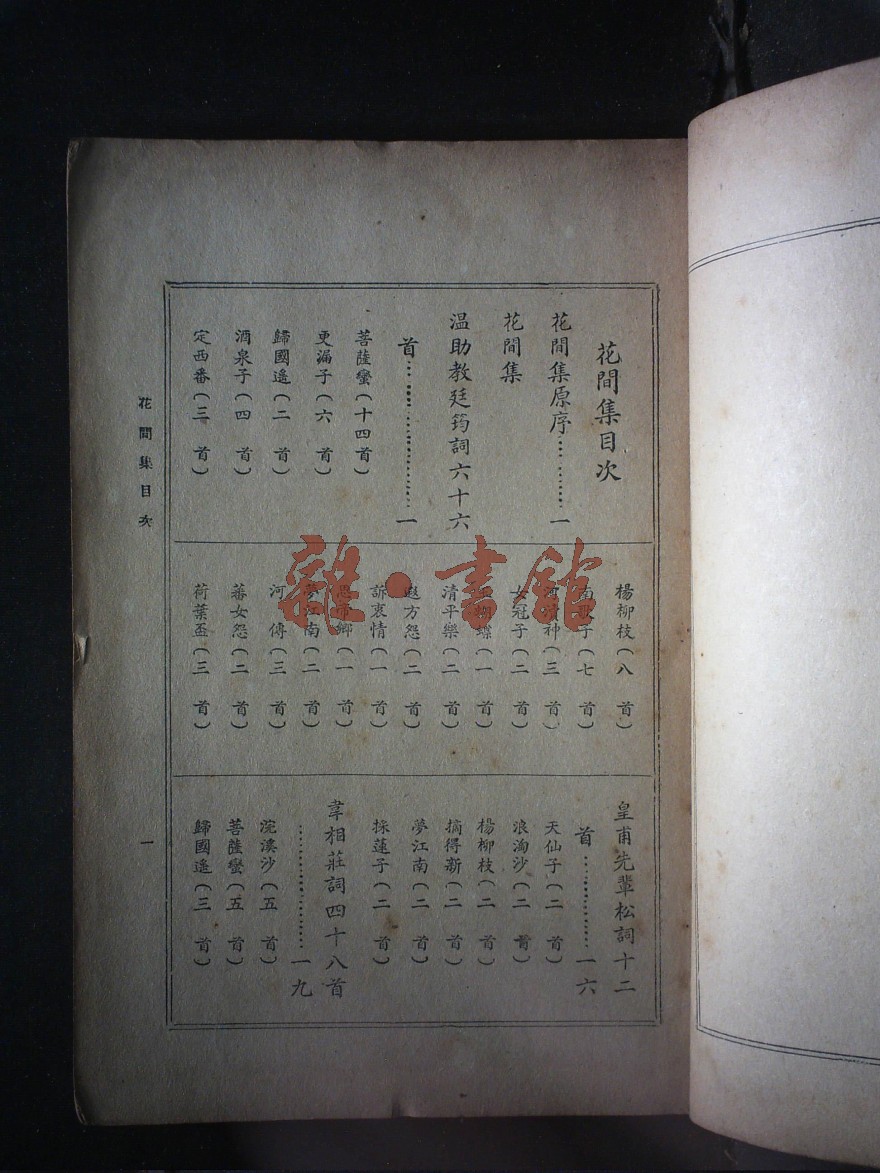 花間集目次
花間集原序……一
花間集
温助教廷筠詞六十六
首……一
菩薩蠻(十四首)
更漏子(六 首)
歸國遙(二 首)
酒泉子(四 首)
定西番(三 首)
楊柳枝(八 首)
南歌子(七 首)
河瀆神(三 首)
女冠子(二 首)
蝴蝶(一 首)
清平樂(二 首)
遐方怨(二 首)
訴衷情(一 首)
思帝鄉(一 首)
夢江南(二 首)
河 傳(三 首)
蕃女怨(二 首)
荷葉盃(三 首)
皇甫先輩松詞十二
首……一六
天仙子(二 首)
浪淘沙(二 首)
楊柳枝(二 首)
摘得新(二 首)
夢江南(二 首)
採蓮子(二 首)
韋相莊詞四十八首
……一九
浣溪沙(五 首)
菩薩蠻(五 首)
歸國遙(三 首)
花間集目次
一
雜·書館